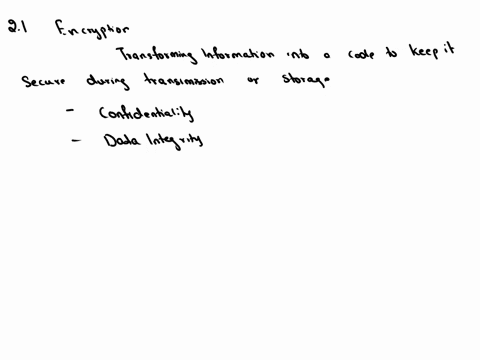 2.1 Encryption
Transforming Information into a code to keep it
Secure during transmission or storage
- Confidentiality
- Data Integrity